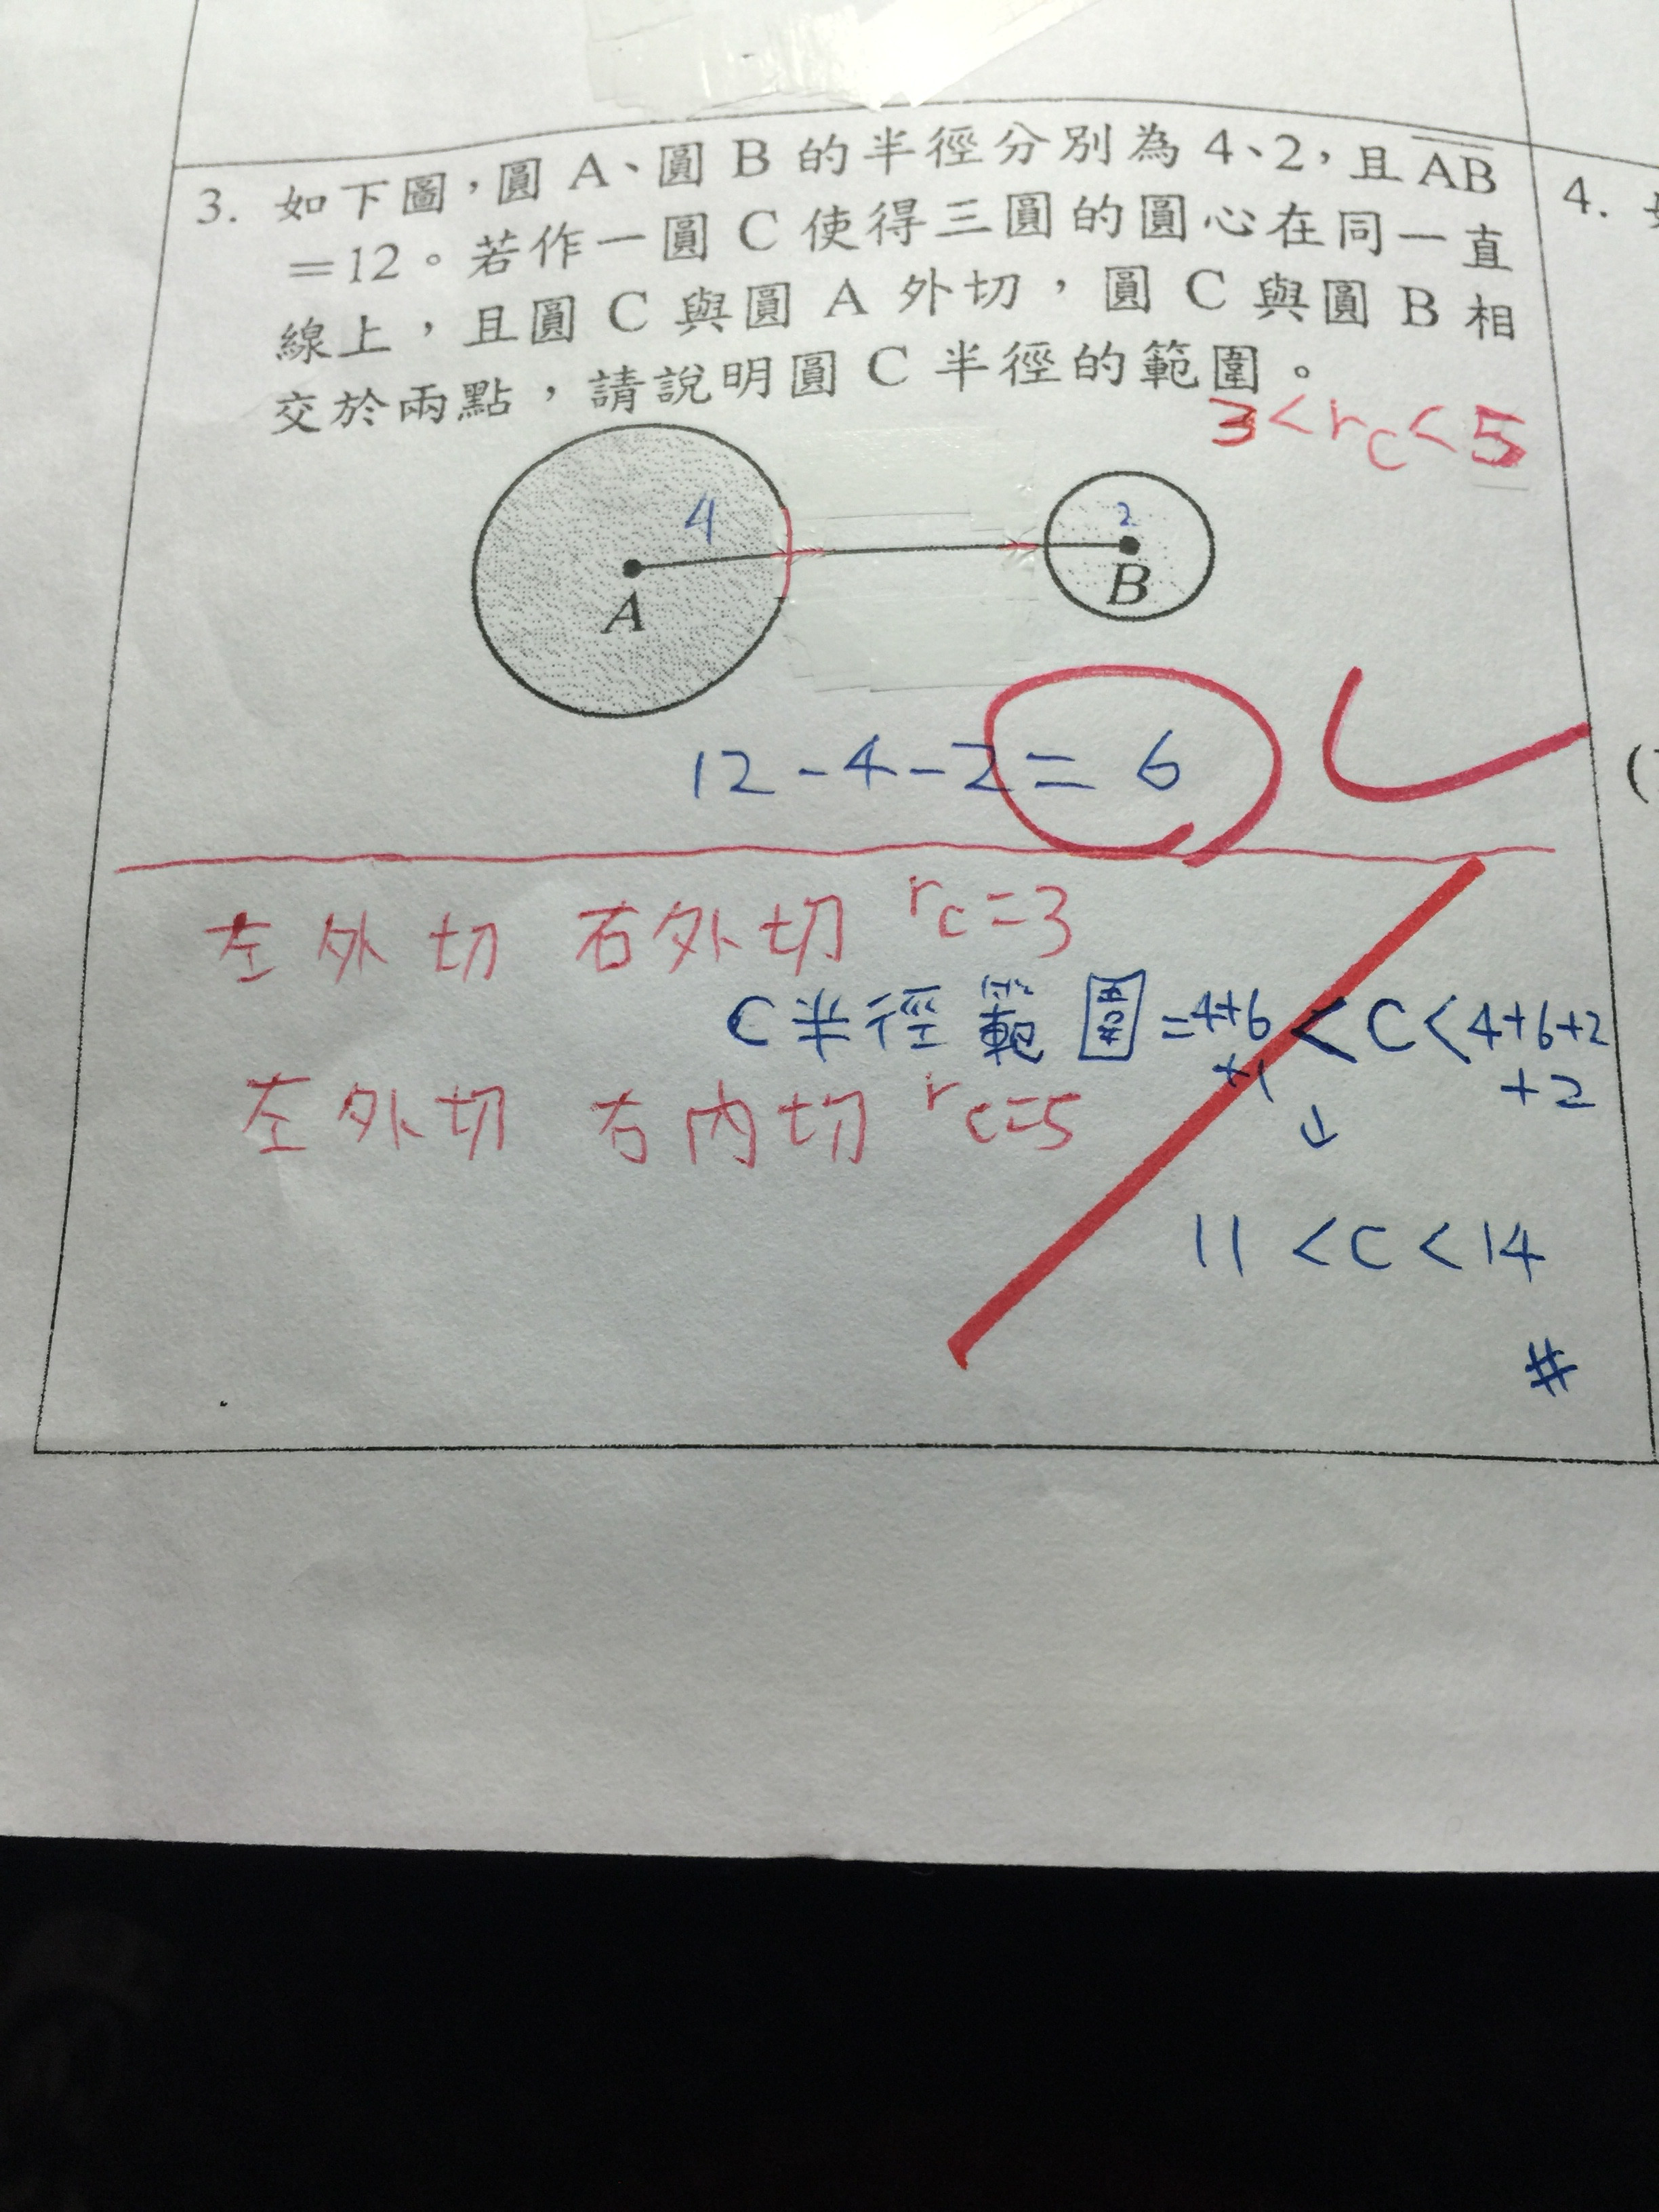 3. 如下圖，圓 A、圓 B 的半徑分別為 4、2，且 AB
=12。若作一圓 C 使得三圓的圓心在同一直
線上，且圓 C 與圓 A 外切，圓 C 與圓 B 相
交於兩點，請說明圓 C 半徑的範圍。
3<rc<5
4
2
A
B
12-4-2=6
左外切 右外切 rc=3
C半徑範圍=4+6+1<C<4+6+2+2
左外切 右內切 rc=5
↓
11<C<14
#
4.
(